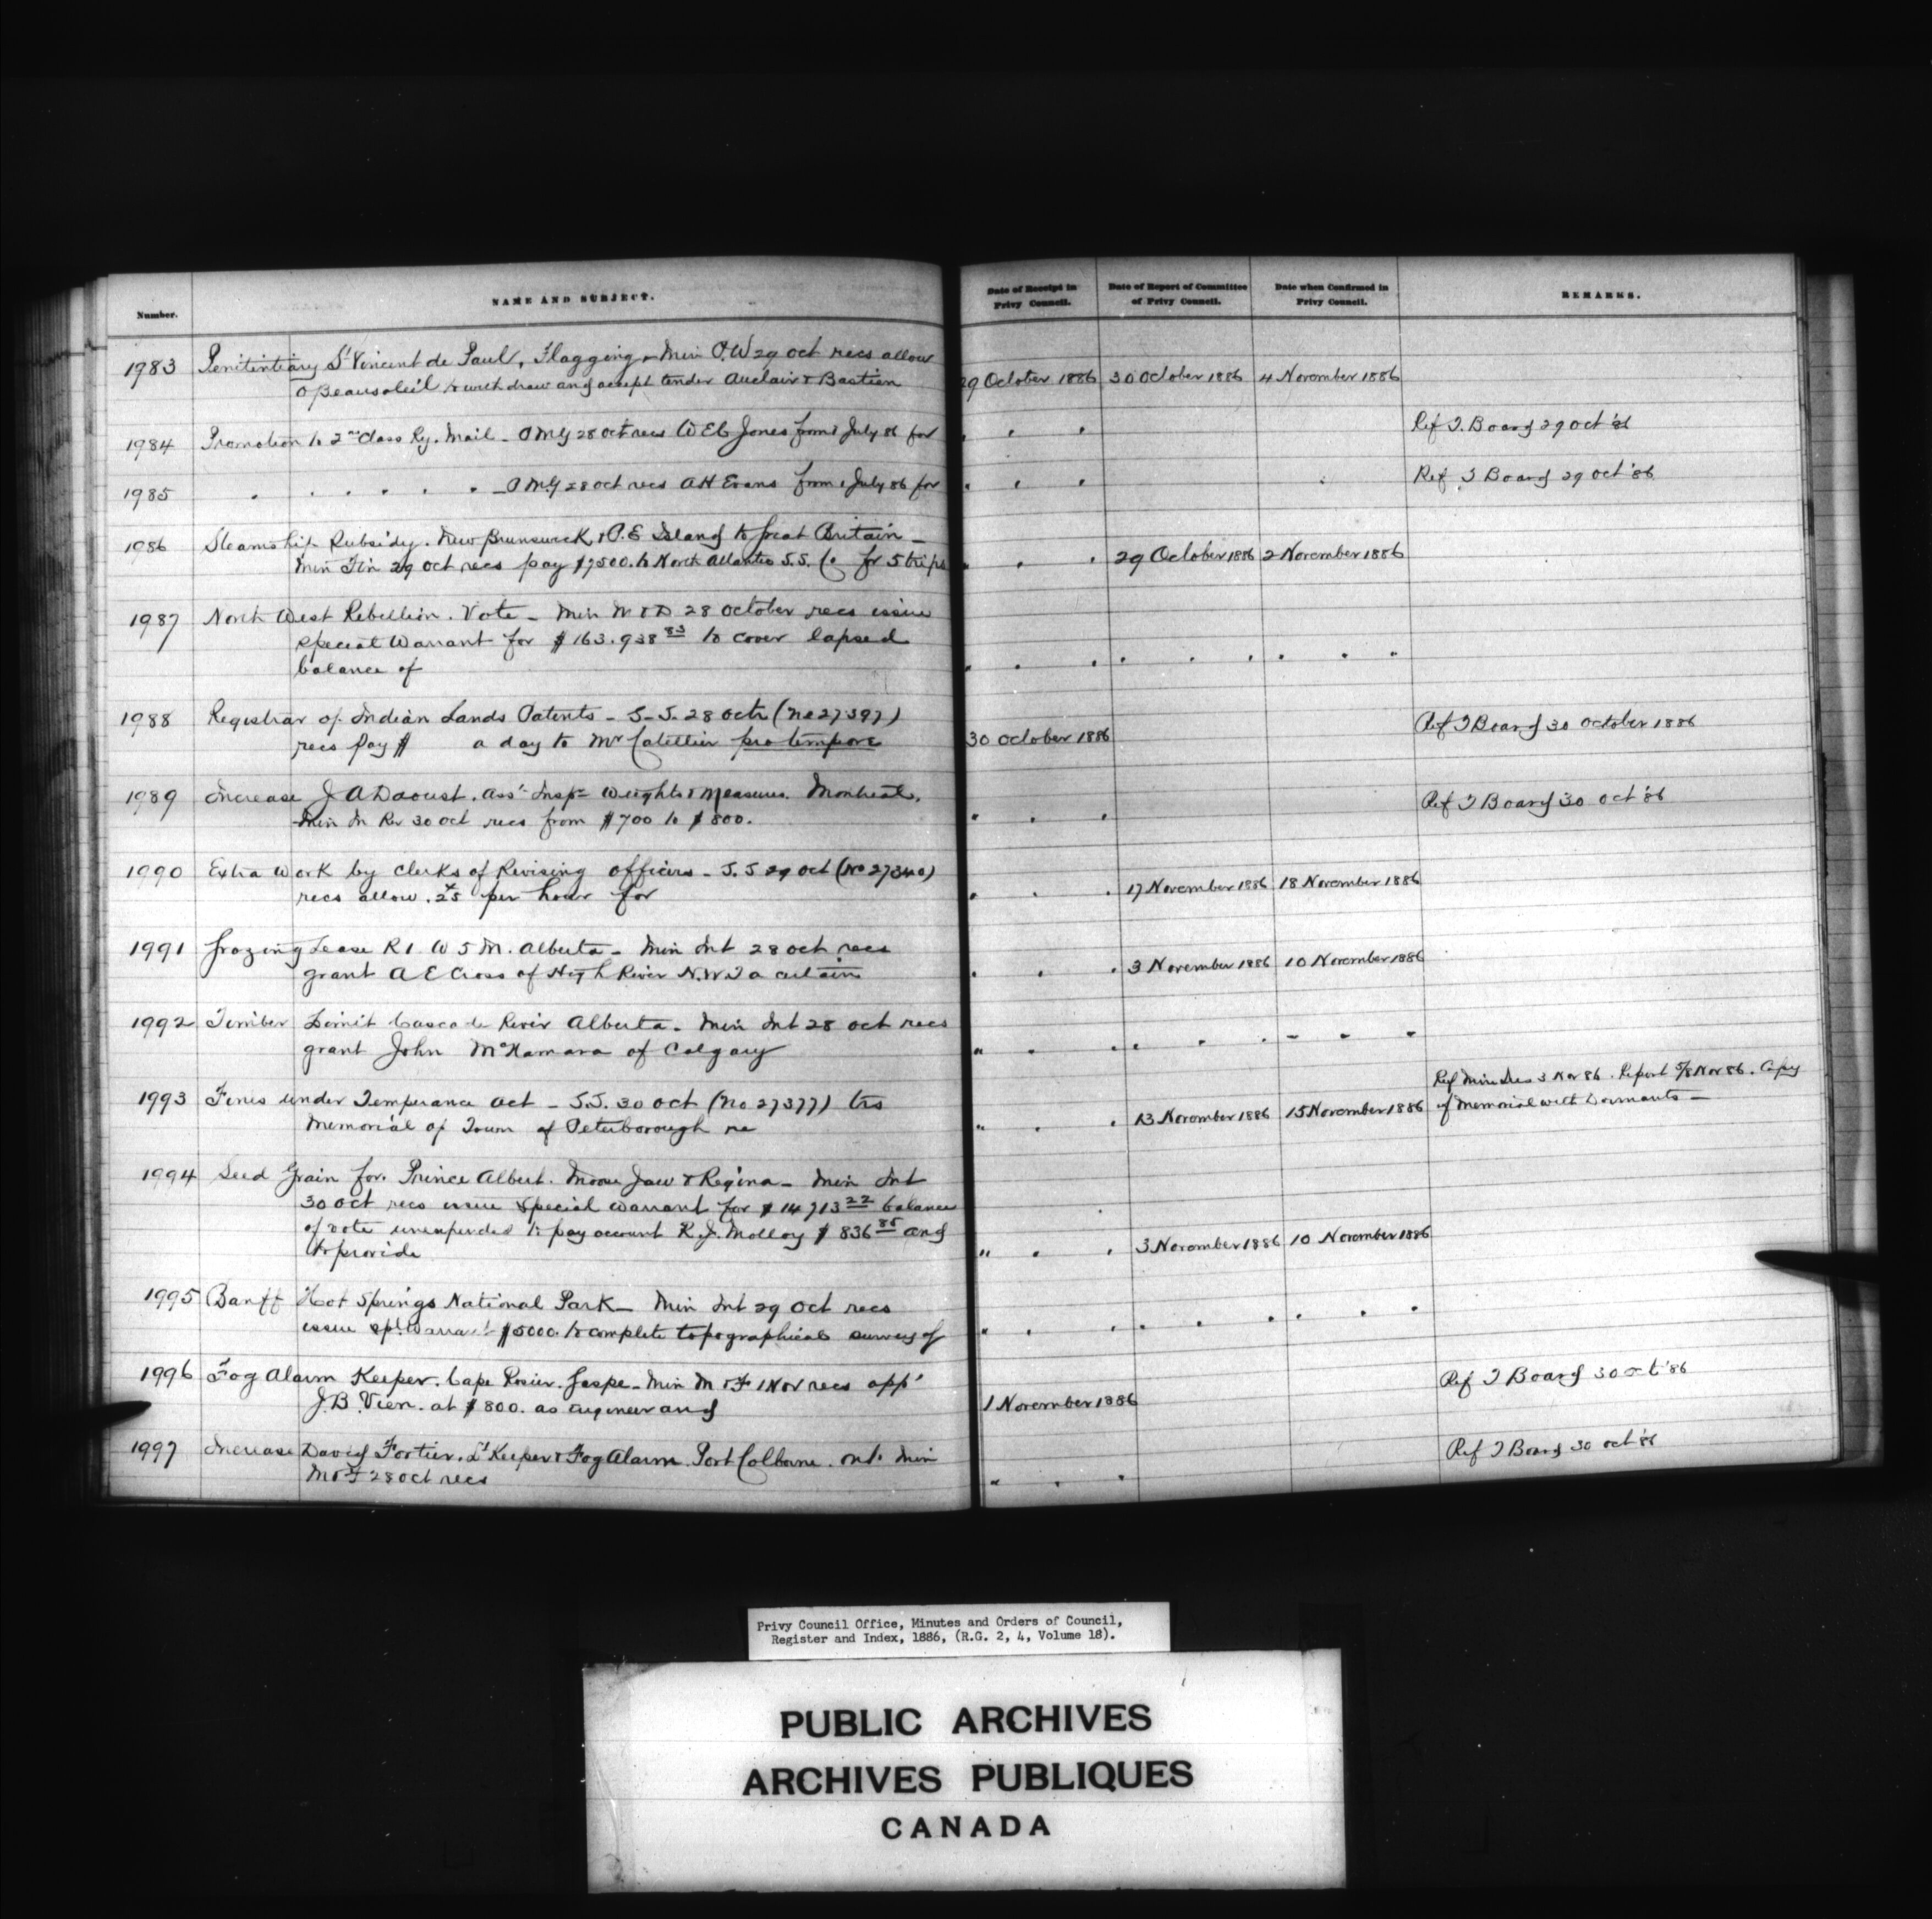 Number.
NAME AND SUBJECT.
Date of Receipt in Privy Council.
Date of Report of Committee of Privy Council.
Date when Confirmed in Privy Council.
REMARKS.
1983 Penitentiary St Vincent de Paul, Flagging - Min P.W 29 Oct recs allow
O Beausoleil to withdraw and accept tender Auclair & Bastien 29 October 1886 30 October 1886 4 November 1886
1984 Promotion to 2nd Class Ry. Mail - PMG 28 Oct recs W E C Jones from 1 July 86 for " " " Ref T. Board 29 Oct '86
1985 " " " " " " - PMG 28 Oct recs A H Evans from 1 July 86 for " " " Ref T Board 29 Oct '86
1986 Steamship Subsidy. New Brunswick & P.E Island to Great Britain -
Min Fin 29 Oct recs pay $7500. to North Atlantic S.S. Co for 5 trips " " " 29 October 1886 2 November 1886
1987 North West Rebellion. Vote - Min M & D 28 October recs issue
Special Warrant for $163.938 83 to cover lapsed
balance of " " " " " " " " "
1988 Registrar of Indian Lands Patents - S.S. 28 Octr (No 27397)
recs pay $ a day to Mr Catellier pro tempore 30 October 1886 Ref T Board 30 October 1886
1989 Increase J A Daoust. Asst Inspr Weights & Measures. Montreal.
Min In Rev 30 Oct recs from $700 to $800. " " " Ref T Board 30 Oct '86
1990 Extra Work by Clerks of Revising Officers - S.S 29 Oct (No 27340)
recs allow .25 per hour for " " " 17 November 1886 18 November 1886
1991 Grazing Lease R 1. W 5 M. Alberta - Min Int 28 Oct recs
grant A E Cross of High River N.W.T a certain " " " 3 November 1886 10 November 1886
1992 Timber Limit Cascade River Alberta - Min Int 28 Oct recs
grant John McNamara of Calgary " " " " " " " " "
1993 Fines under Temperance Act - S.S. 30 Oct (No 27377) trs
Memorial of Town of Peterborough re " " " 13 November 1886 15 November 1886
Ref Min Jus 3 Nov 86. Report 5/8 Nov 86. Copy
of Memorial with Dormants -
1994 Seed Grain for Prince Albert. Moose Jaw & Regina - Min Int
30 Oct recs issue Special Warrant for $14713 22 balance
of vote unexpended to pay account R.J. Molloy $836 85 and
to provide " " " 3 November 1886 10 November 1886
1995 Banff Hot Springs National Park - Min Int 29 Oct recs
issue spl Warrant $5000. to complete topographical survey of " " " " " " " " "
1996 Fog Alarm Keeper. Cape Rosier. Gaspe - Min M & F 1 Nov recs appt
J.B. Vien. at $800. as engineer and 1 November 1886 Ref T Board 30 Oct '86
1997 Increase David Fortier. Lt Keeper & Fog Alarm. Port Colborne. Ont. Min
M & F 28 Oct recs " " " Ref T Board 30 Oct '86
Privy Council Office, Minutes and Orders of Council,
Register and Index, 1886, (R.G. 2, 4, Volume 18).
PUBLIC ARCHIVES
ARCHIVES PUBLIQUES
CANADA